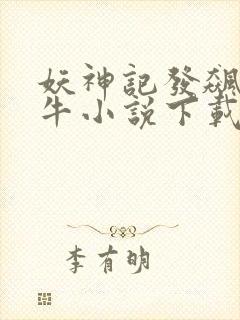 妖神記發飆
牛小說下載
李有明